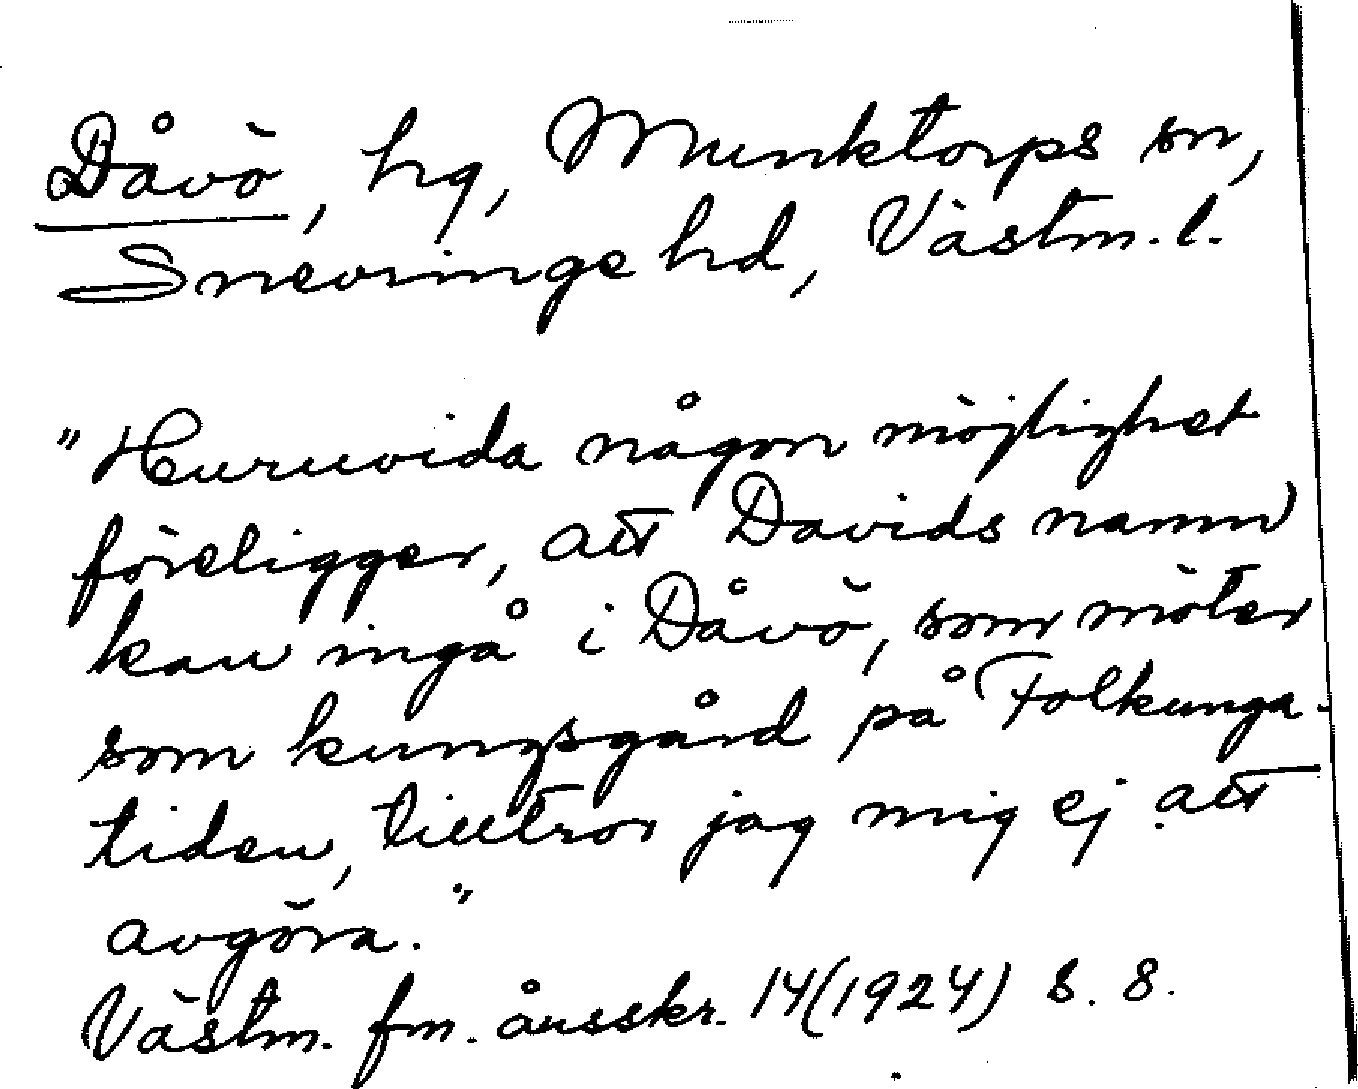 Dåvö, hg, Munktorps sn,
Snevringe hd, Västm. l.
"Huruvida någon möjlighet
föreligger, att Davids namn
kan ingå i Dåvö, som möter
som kungsgård på Folkunga-
tiden, tilltror jag mig ej att
avgöra."
Västm. fm. årsskr. 14 (1924) s. 8.